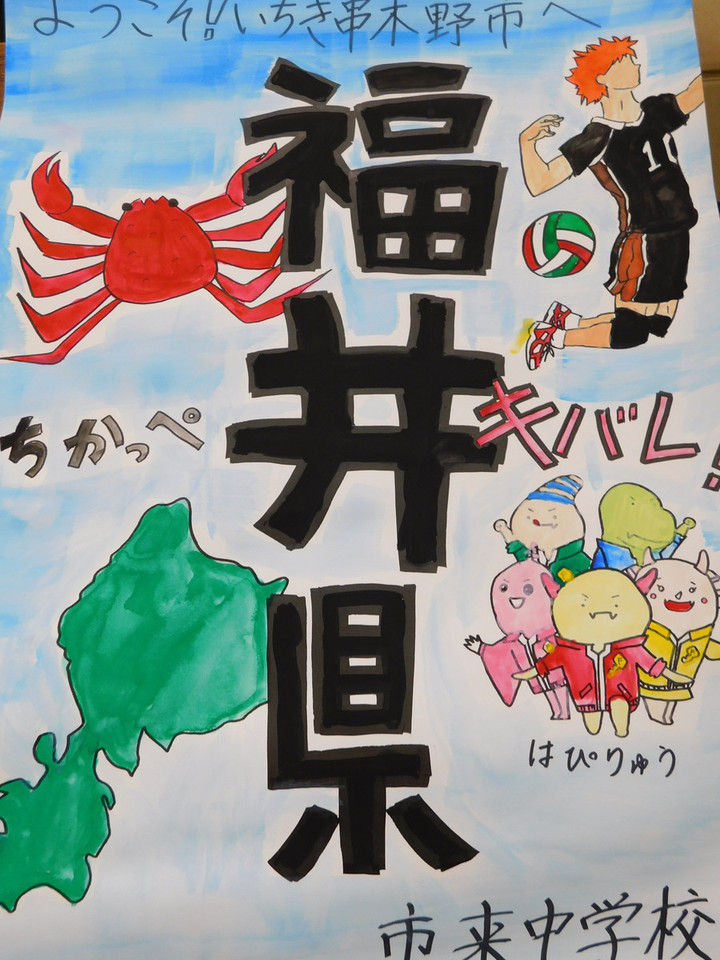 ようこそ!!いちき串木野市へ
福井県
10
ちかっぺ
キバレ!
はぴりゅう
市来中学校